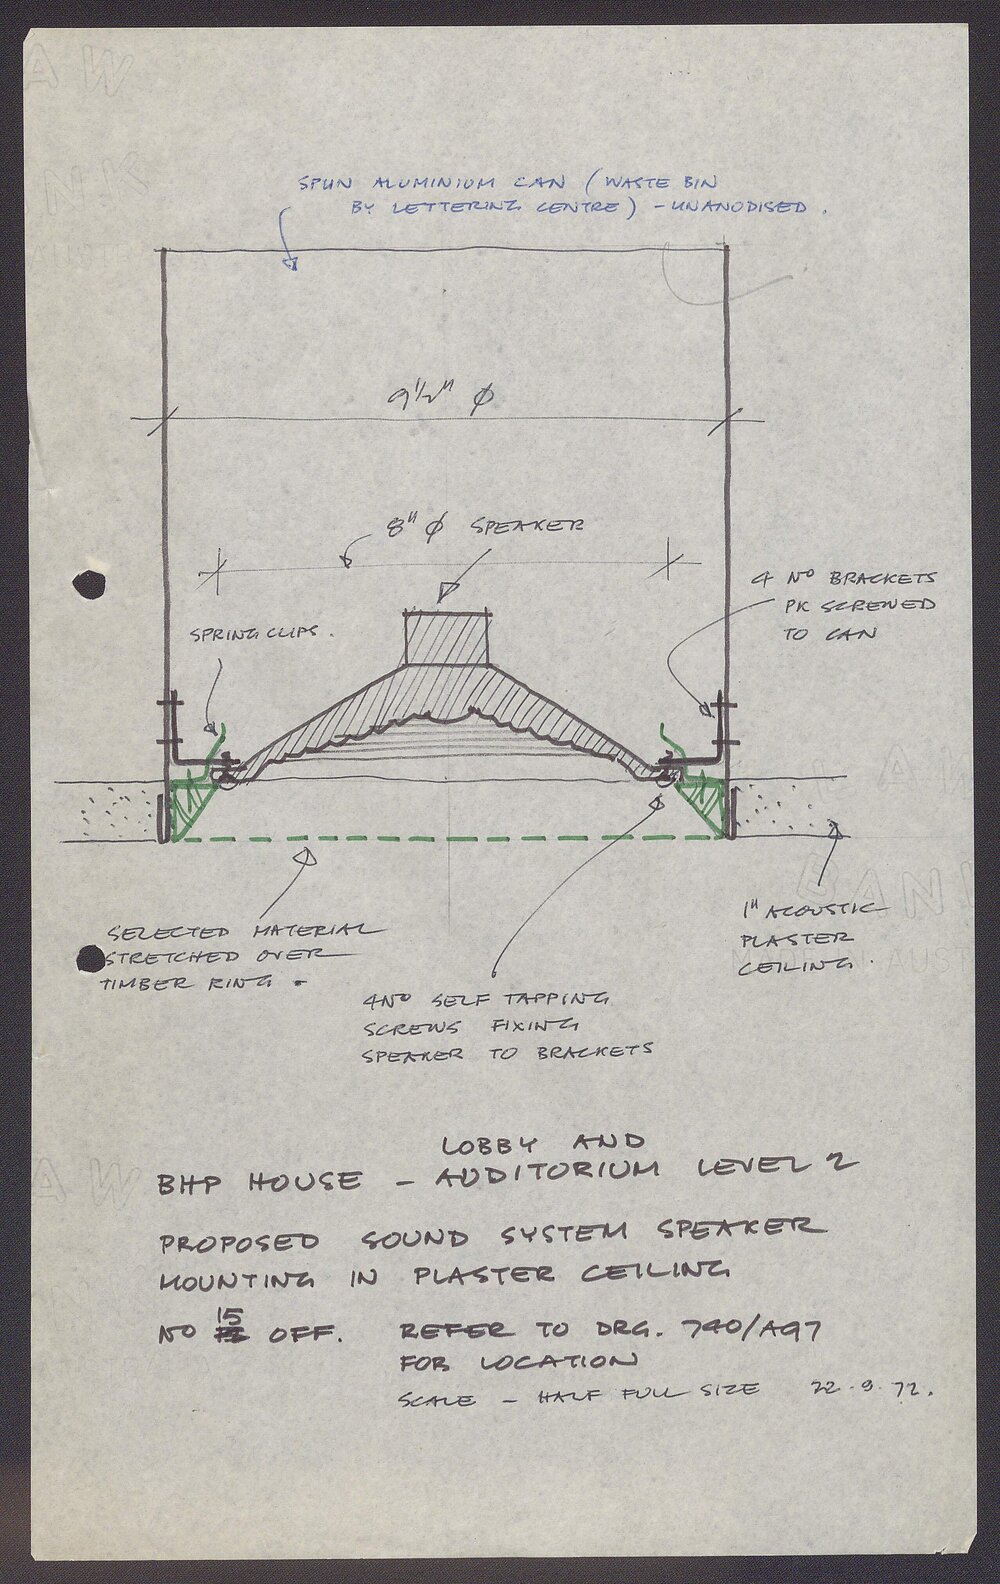 SPUN ALUMINIUM CAN (WASTE BIN
BY LETTERING CENTRE) - UNANODISED.
9½" ϕ
8" ϕ SPEAKER
4 NO BRACKETS
PK SCREWED
TO CAN
SPRING CLIPS.
1" ACOUSTIC
PLASTER
CEILING.
SELECTED MATERIAL
STRETCHED OVER
TIMBER RING.
4 NO SELF TAPPING
SCREWS FIXING
SPEAKER TO BRACKETS
LOBBY AND
BHP HOUSE - AUDITORIUM LEVEL 2
PROPOSED SOUND SYSTEM SPEAKER
MOUNTING IN PLASTER CEILING
NO 15 OFF. REFER TO DRG. 740/A97
FOR LOCATION
SCALE - HALF FULL SIZE 22.9.72.